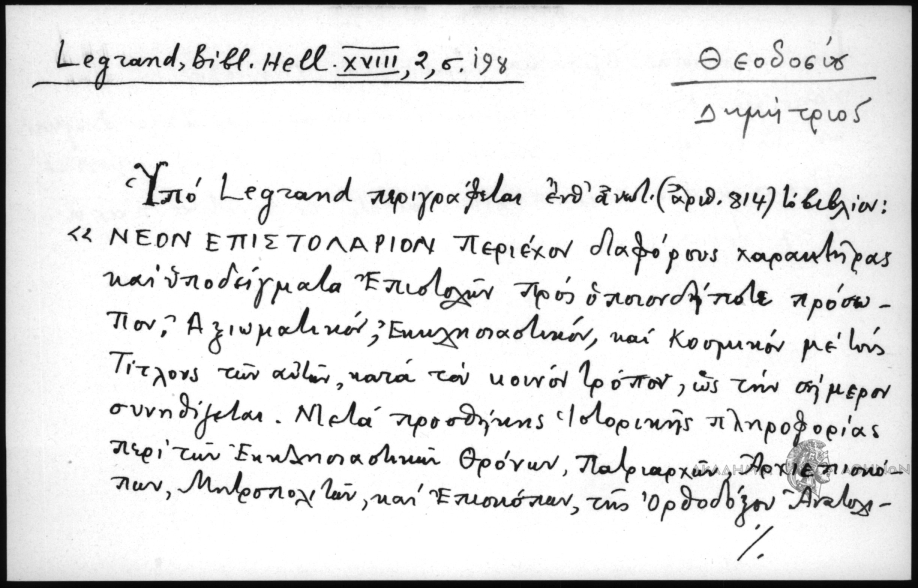 Legrand, Bibl. Hell. XVIII, 2, σ. 198
Θεοδοσίου
Δημήτριος
Ὑπό Legrand περιγράφεται ἐνθ' ἀνωτ. (ἀριθ. 814) τό βιβλίον:
«ΝΕΟΝ ΕΠΙΣΤΟΛΑΡΙΟΝ περιέχον διαφόρους χαρακτῆρας
καί ὑποδείγματα Ἐπιστολῶν πρός ὁποιονδήποτε πρόσω-
πον, Ἀξιωματικόν, Ἐκκλησιαστικόν, καί Κοσμικόν μέ τούς
Τίτλους τῶν αὐτῶν, κατά τόν κοινόν τρόπον, ὡς τήν σήμερον
συνηθίζεται. Μετά προσθήκης Ἱστορικῆς πληροφορίας
περί τῶν Ἐκκλησιαστικῶν Θρόνων, Πατριαρχῶν, Ἀρχιεπισκό-
πων, Μητροπολιτῶν, καί Ἐπισκόπων, τῆς Ὀρθοδόξου Ἀνατολι-
./.